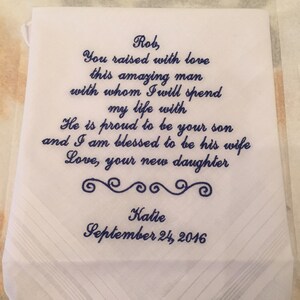 Rob,
You raised with love
this amazing man
with whom I will spend
my life with
He is proud to be your son
and I am blessed to be his wife
Love, your new daughter
Katie
September 24, 2016